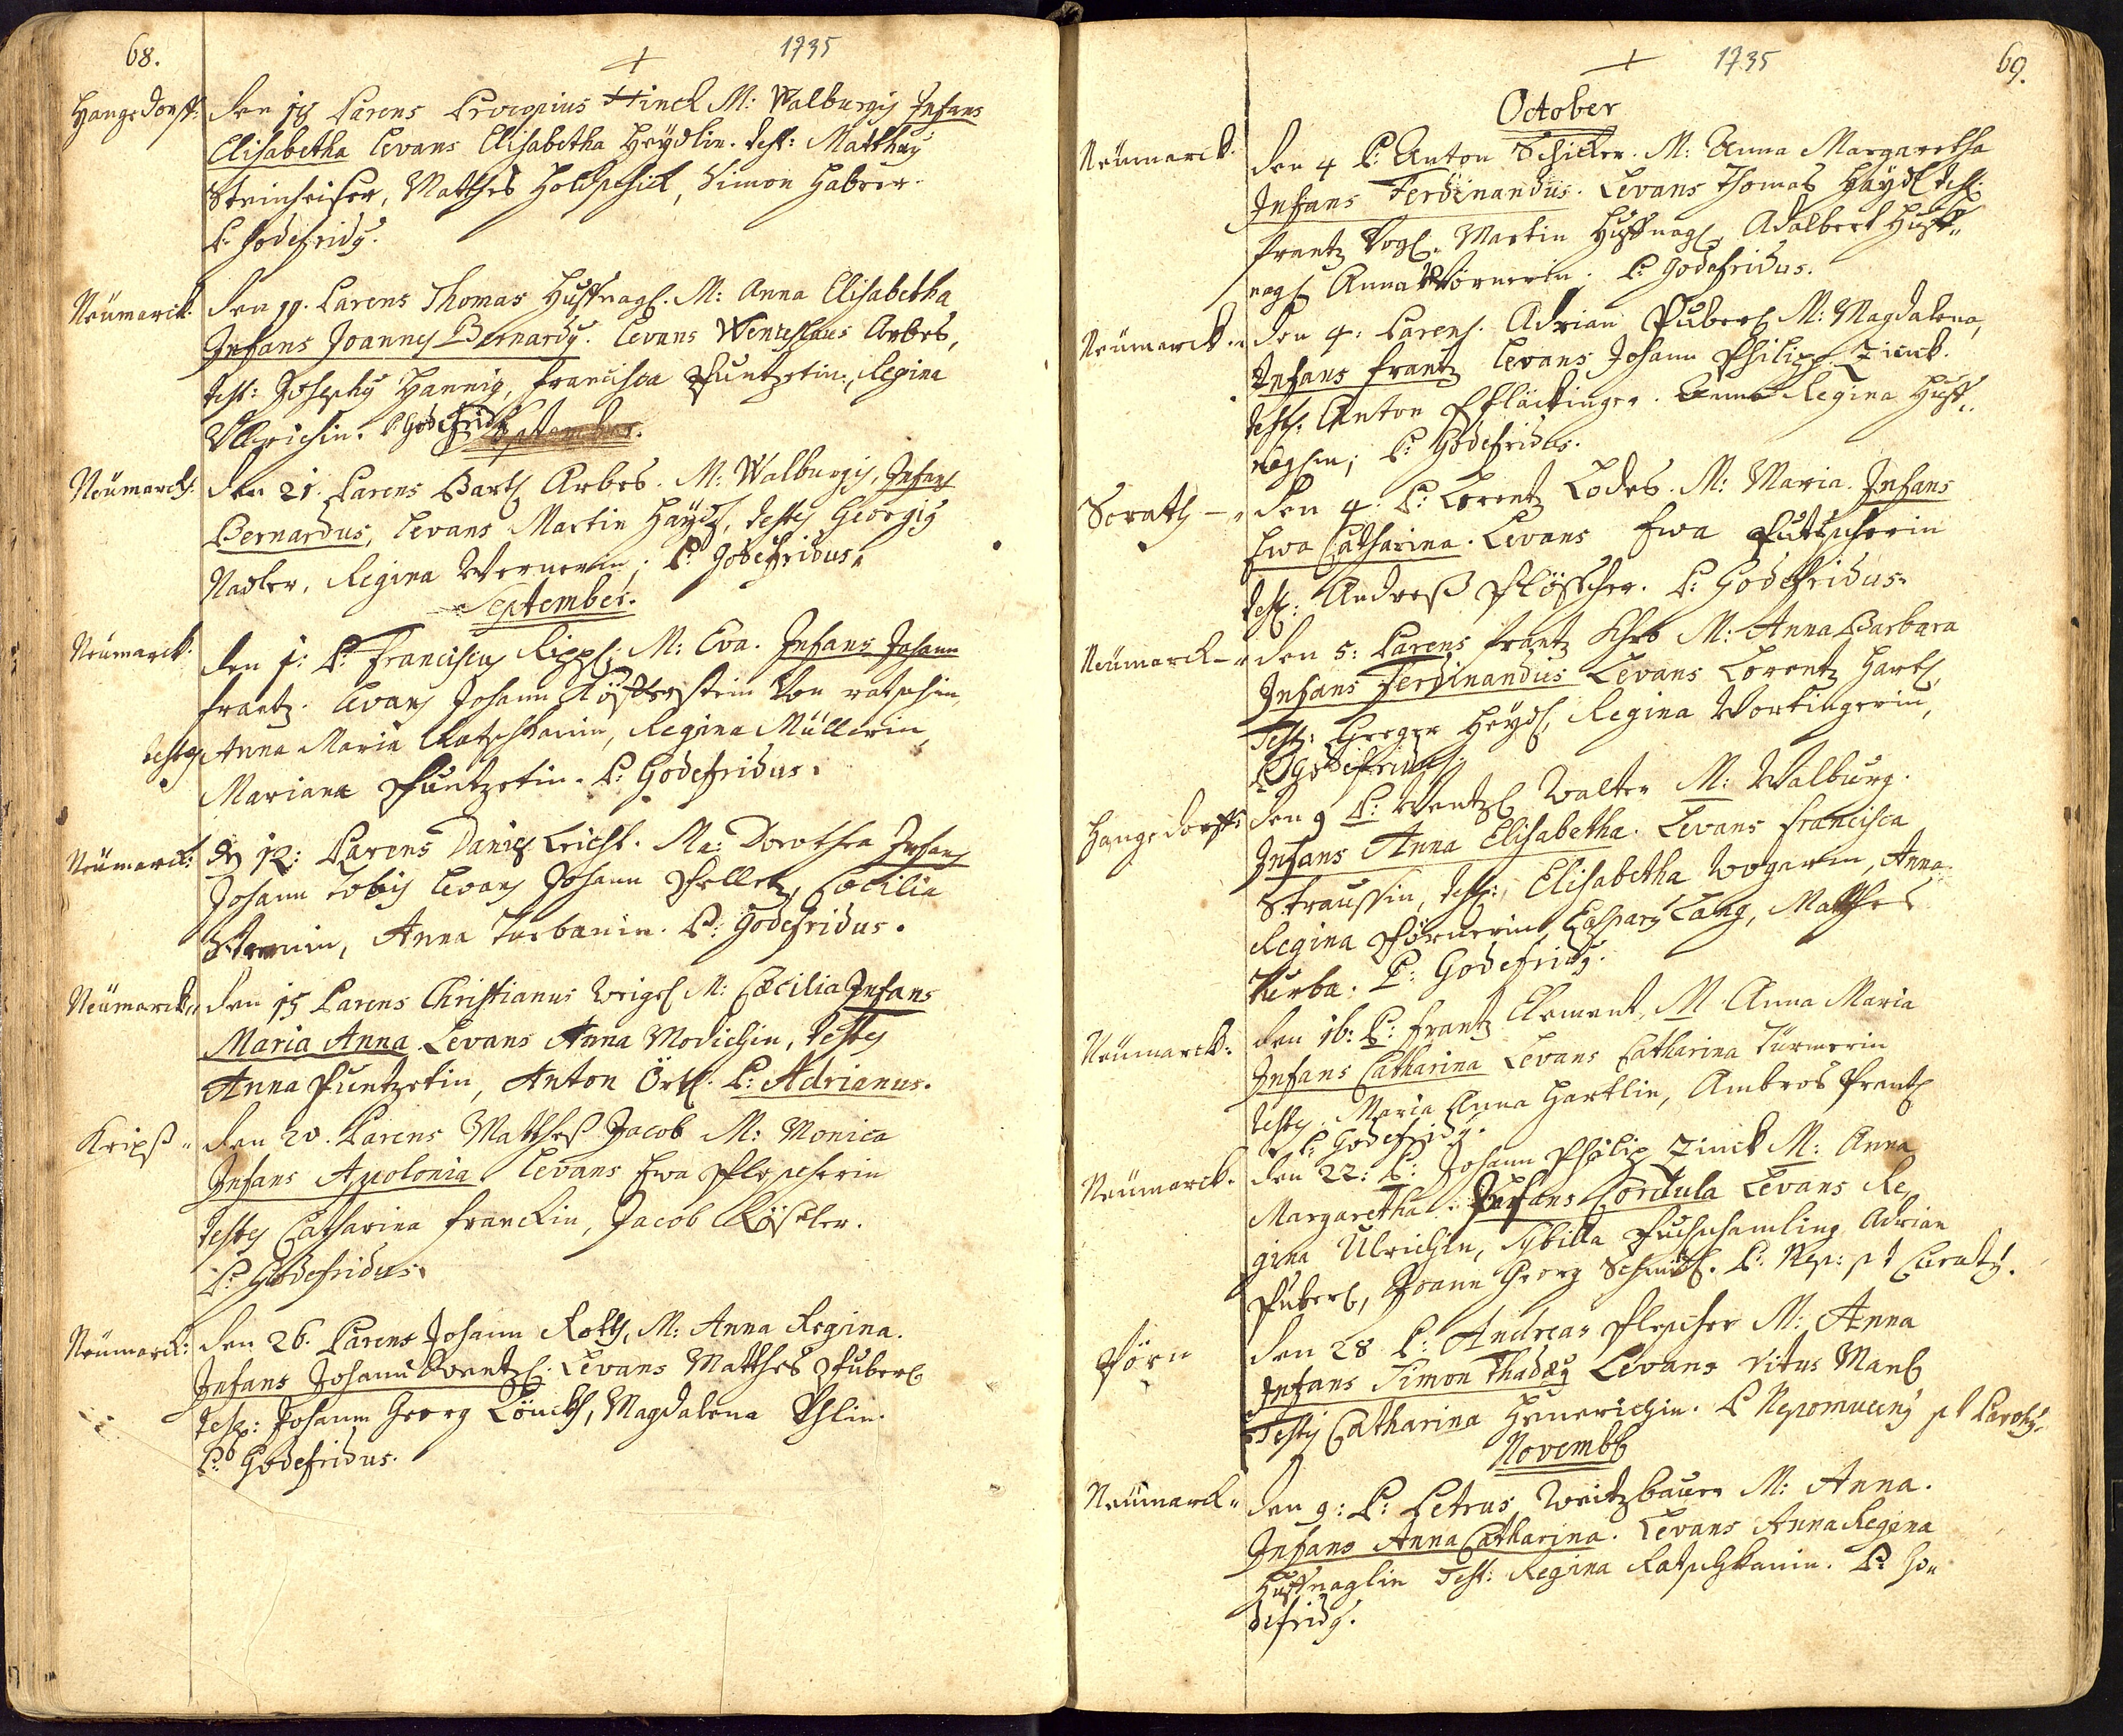 68.
1735
Hangsdorff: den 18 Parens Procopius Hinck M: Walburgis Infans
Elisabetha Levans Elisabetha Heÿdlin. test: Matthæy
Steinheiser, Matthes, Simon Habrer.
P: Godefridy.
Neümarck. den 19. Parens Thomas Huffnagl. M: Anna Elisabetha
Infans Joannes Bernardy. Levans Wenzeslaus Arbes,
test: Josephy Hannig, Francisca Puntzetin, Regina
Ullrichin. P Godefridy
Neümarck: den 21. Parens Bartl Arbes. M: Walburgis, Infans
Bernardus, Levans Martin Haÿdl, testes Georgig
Nadler, Regina Wernerin; P: Godefridus.
September.
Neümarck. den 1: P: Franciscus Rippl: M: Eva. Infans Johann
Frantz. Levans Johann Von
testes Anna Maria Ratschkanin, Regina Müllerin,
Mariana Puntzetin. P: Godefridus.
Neümarck: den 12: Parens Daniel Leichl. Ma: Dorothea Infans
Johann tobig Levans Johann Pelletz, Cœcilia
Anna Turbanin. P: Godefridus.
Neümarck. den 15 Parens Christianus Weigl M: Cæcilia Infans
Maria Anna Levans Anna Modichin, testes
Anna Puntzetin, Anton Örtl. P: Adrianus.
Kripß den 20. Parens Matthes Jacob M: Monica
Infans Apolonia Levans Ewa Plescherin
testes Catharina Franckin, Jacob Rößler.
P: Godefridus
Neümarck: den 26. Parens Johann Roth, M: Anna Regina.
Infans Johann Wentzl. Levans Matthes Puberl
test: Johann Georg Magdalena
P: Godefridus.
1735
69.
October
Neümarck. den 4 P: Anton Schicker. M: Anna Margaretha
Infans Ferdinandus. Levans Thomas Haÿdl test:
Frantz Vogl. Martin Huffnagl, Adalbert Huff-
nagl Anna Wörnerin. P: Godefridus.
Neümarck. den 4: Parens. Adrian Puberl M: Magdalena,
Infans Frantz Levans Johann Philipp Zinck.
test: Anton Pflackinger. Anna Regina Huff-
naglin; P: Godefridus.
Serath - den 4. P: Lorentz Lodes. M: Maria. Infans
Ewa Catharina. Levans Ewa Puttscherin
test: Andreß Plöscher. P: Godefridus.
Neümarck - den 5: Parens Frantz M: Anna Barbara
Infans Ferdinandus Levans Lorentz Hartl,
Test: Gregor Heÿdl, Regina Wortingerin,
P Godefridus.
Hangsdorff: den 9 P: Wentzl Walter M: Walburg.
Infans Anna Elisabetha. Levans Francisca
Straussin, test: Elisabetha Wogarin, Anna
Regina Pörnerin, Casparg Lang, Matthes
Turba. P: Godefridy.
Neümarck: den 16: P: Frantz Element, M Anna Maria
Infans Catharina Levans Catharina Türmerin
testes Maria Anna Hartlin, Ambros Prantl
P: Godefridy.
Neümarck. den 22: P: Johann Philip Zinck M: Anna
Margaretha. Infans Cordula Levans Re,
gina Ulrichin, Sybilla Adrian
Puberl, Joann Georg Schmidl. P: Nep: p t Curaty.
Pörn den 28 P: Andreas Plescher M: Anna
Infans Simon Thadæy Levans Vitus Manl
Testes Catharina Henerichin. P Nepomuceny p t Parochy.
Novemb
Neümarck den 9: P: Petrus Weitzbauer M: Anna.
Infans Anna Catharina. Levans Anna Regina
Huffnaglin Test: Regina Ratschkanin. P: Go-
defridy.